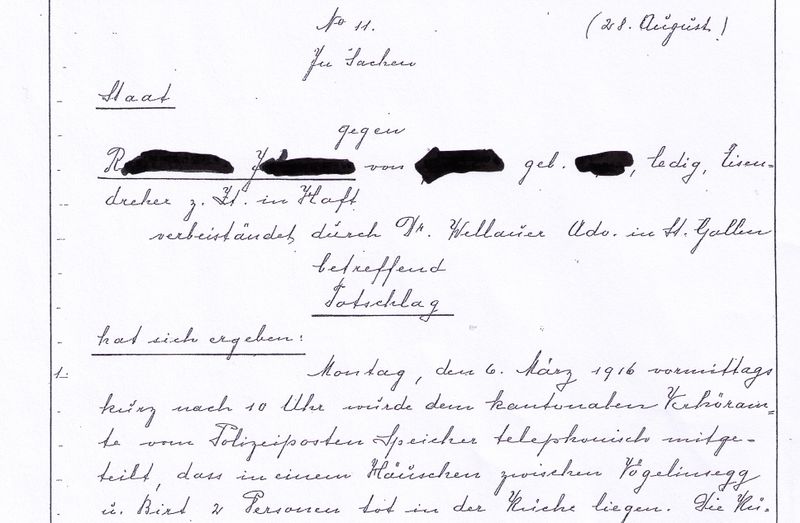 No 11. (28. August)
In Sachen
Staat
gegen
R J von geb. , ledig, Eisen-
dreher z. Zt. in Haft
verbeiständet durch Dr. Wellauer Adv. in St. Gallen
betreffend
Totschlag
hat sich ergeben:
1. Montag, den 6. März 1916 vormittags
kurz nach 10 Uhr wurde dem kantonalen Verhöram-
te vom Polizeiposten Speicher telephonisch mitge-
teilt, dass in einem Häuschen zwischen Vögelinsegg
u. Birt 2 Personen tot in der Küche liegen. Die